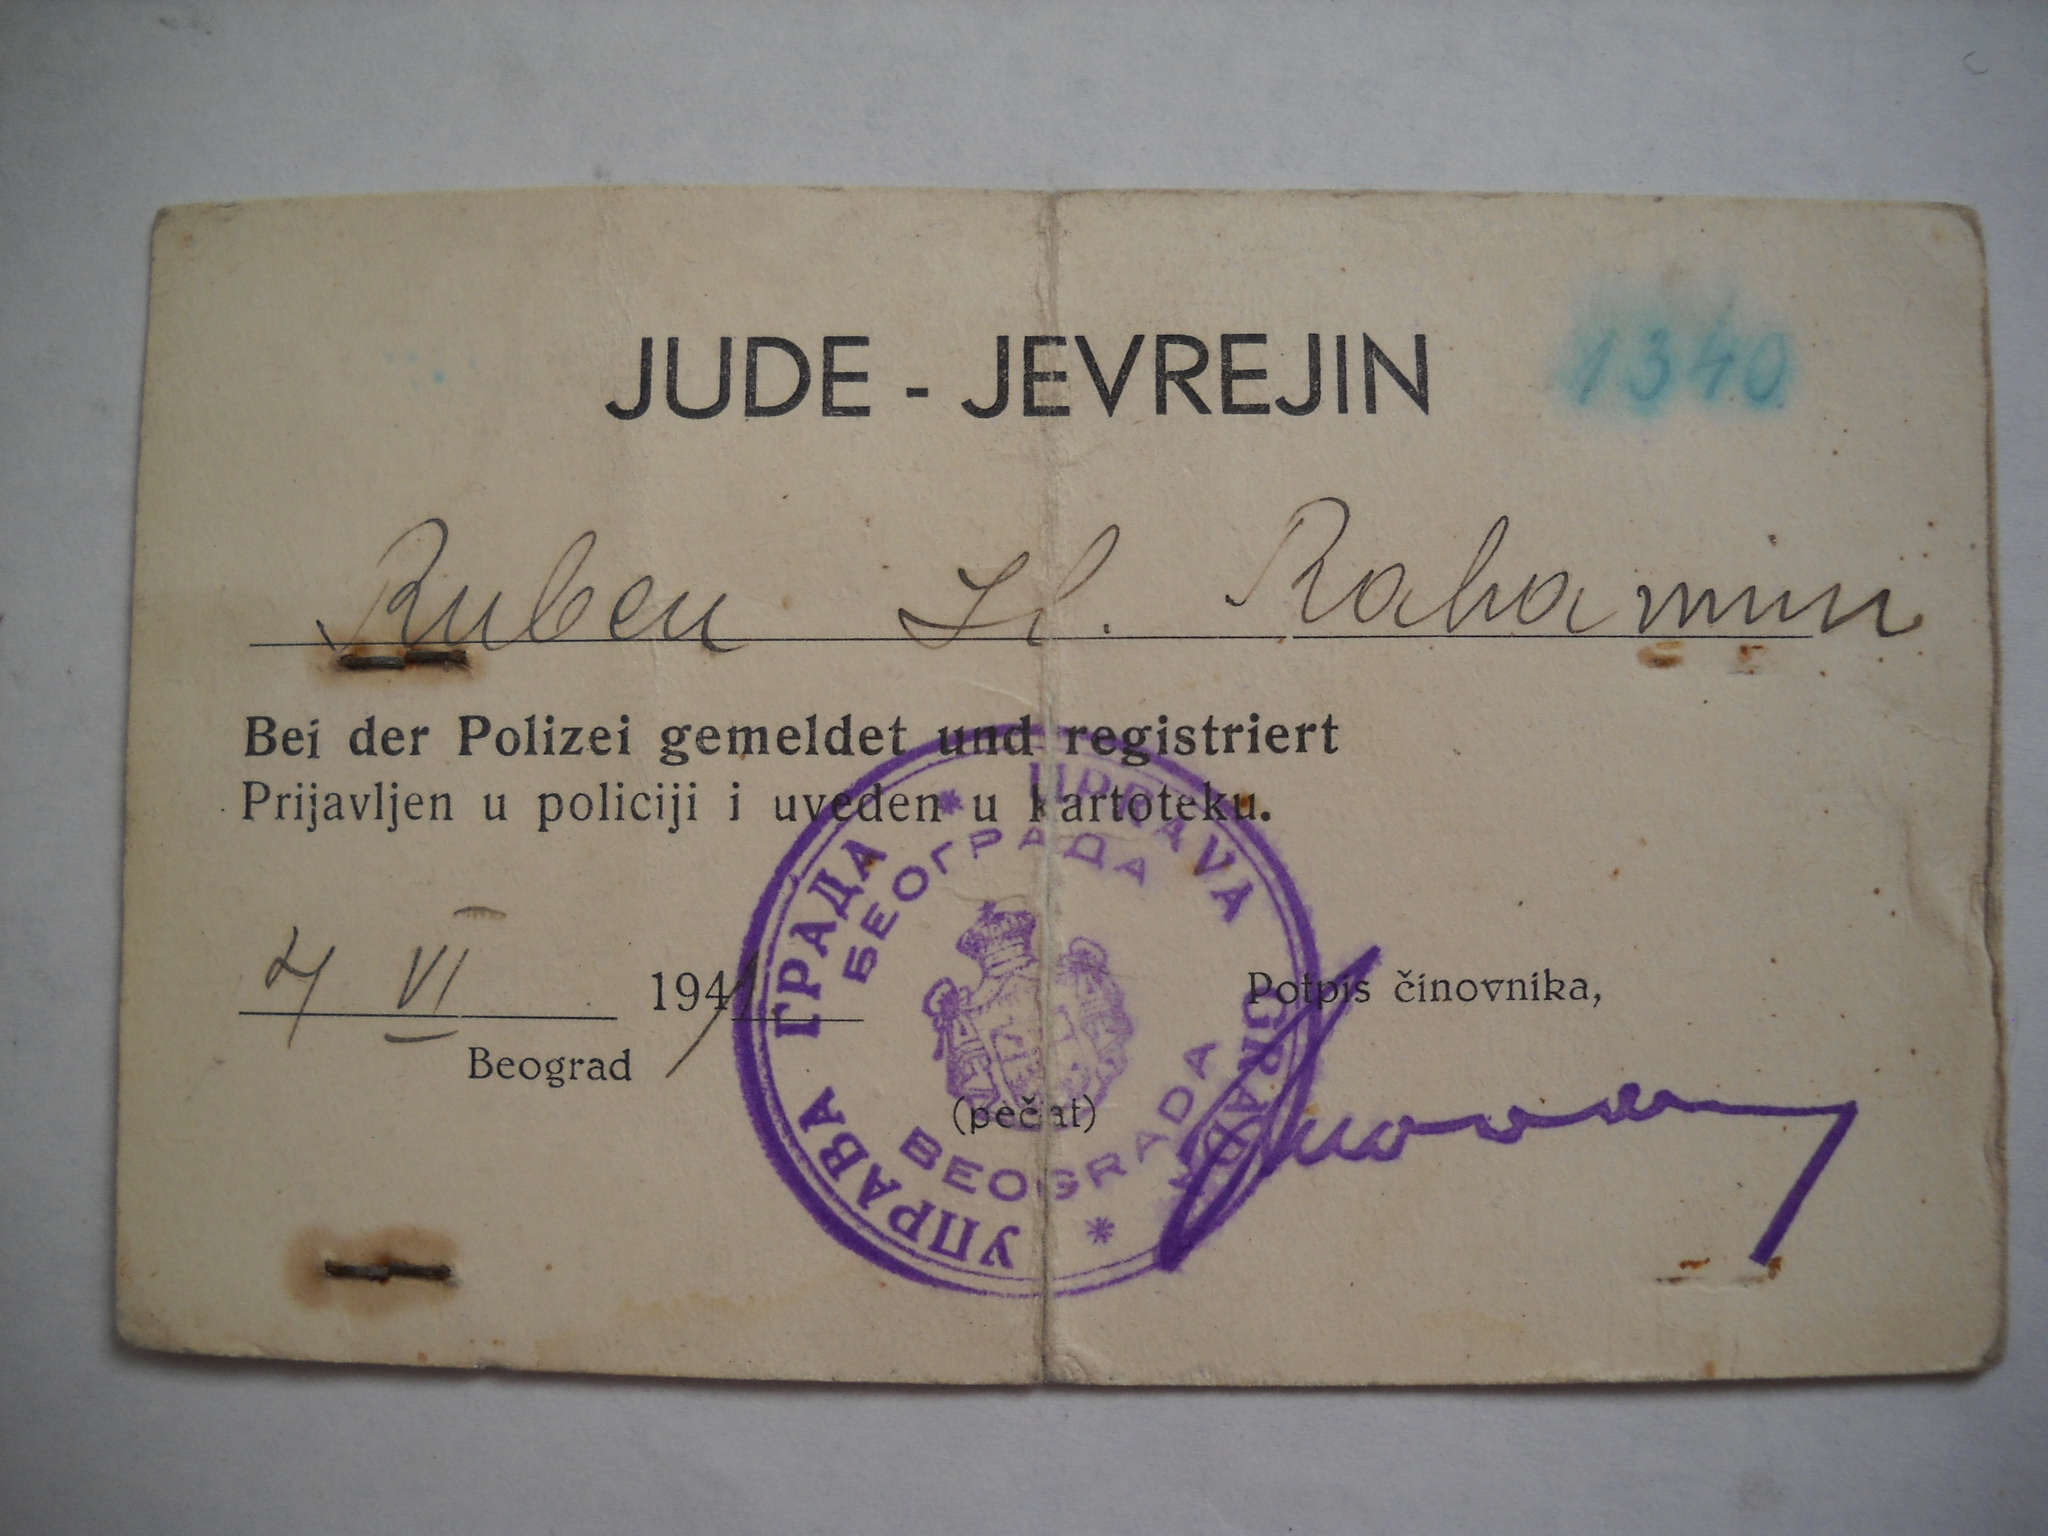 JUDE - JEVREJIN 1340
Ruben Il. Rahamim
Bei der Polizei gemeldet und registriert
Prijavljen u policiji i uveden u kartoteku.
4 VI 1941
Beograd
Potpis činovnika,
(pečat)
УПРАВА ГРАДА * UPRAVA GRADA *
БЕОГРАДА
BEOGRADA